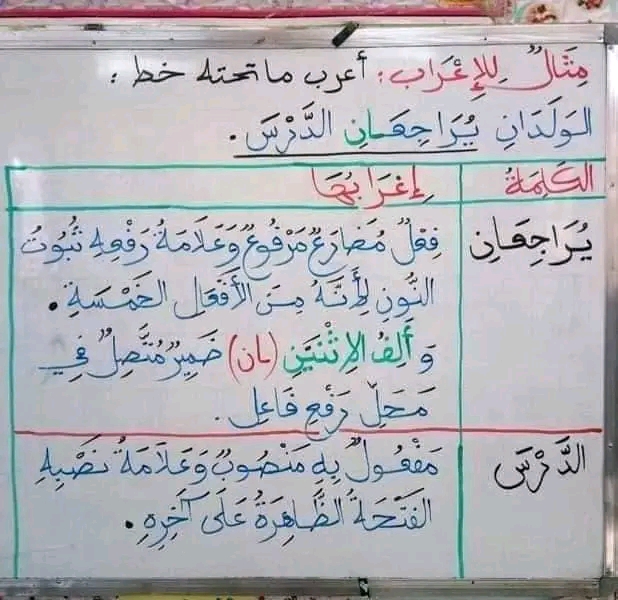 مِثَالٌ لِلإِعْرَاب: أعرب ما تحته خط :
الوَلَدَانِ يُرَاجِعَانِ الدَّرْسَ .
الكَلِمَةُ إِعْرَابُهَا
يُرَاجِعَانِ فِعْلٌ مُضَارِعٌ مَرْفُوعٌ وَعَلَامَةُ رَفْعِهِ ثُبُوتُ
النُّونِ لِأَنَّهُ مِنَ الأَفْعَالِ الخَمْسَةِ .
وَ أَلِفُ الاِثْنَيْنِ (ـان) ضَمِيرٌ مُتَّصِلٌ فِي
مَحَلِّ رَفْعِ فَاعِل .
الدَّرْسَ مَفْعُولٌ بِهِ مَنْصُوبٌ وَعَلَامَةُ نَصْبِهِ
الفَتْحَةُ الظَّاهِرَةُ عَلَى آخِرِهِ .